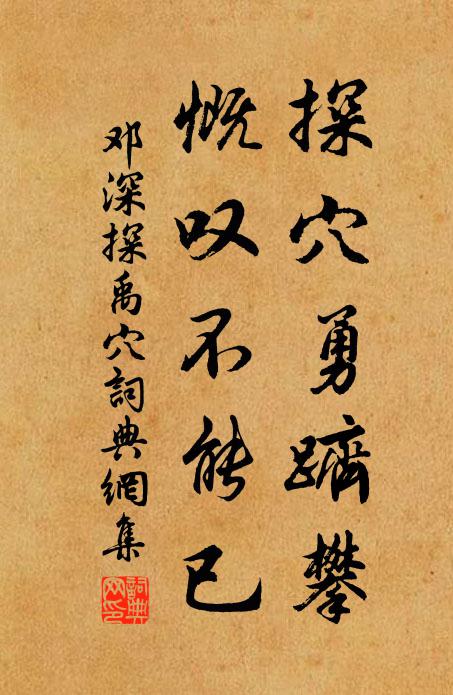 探穴勇躋攀
慨叹不能已
邓深探禹穴詞典網集
詞典网印